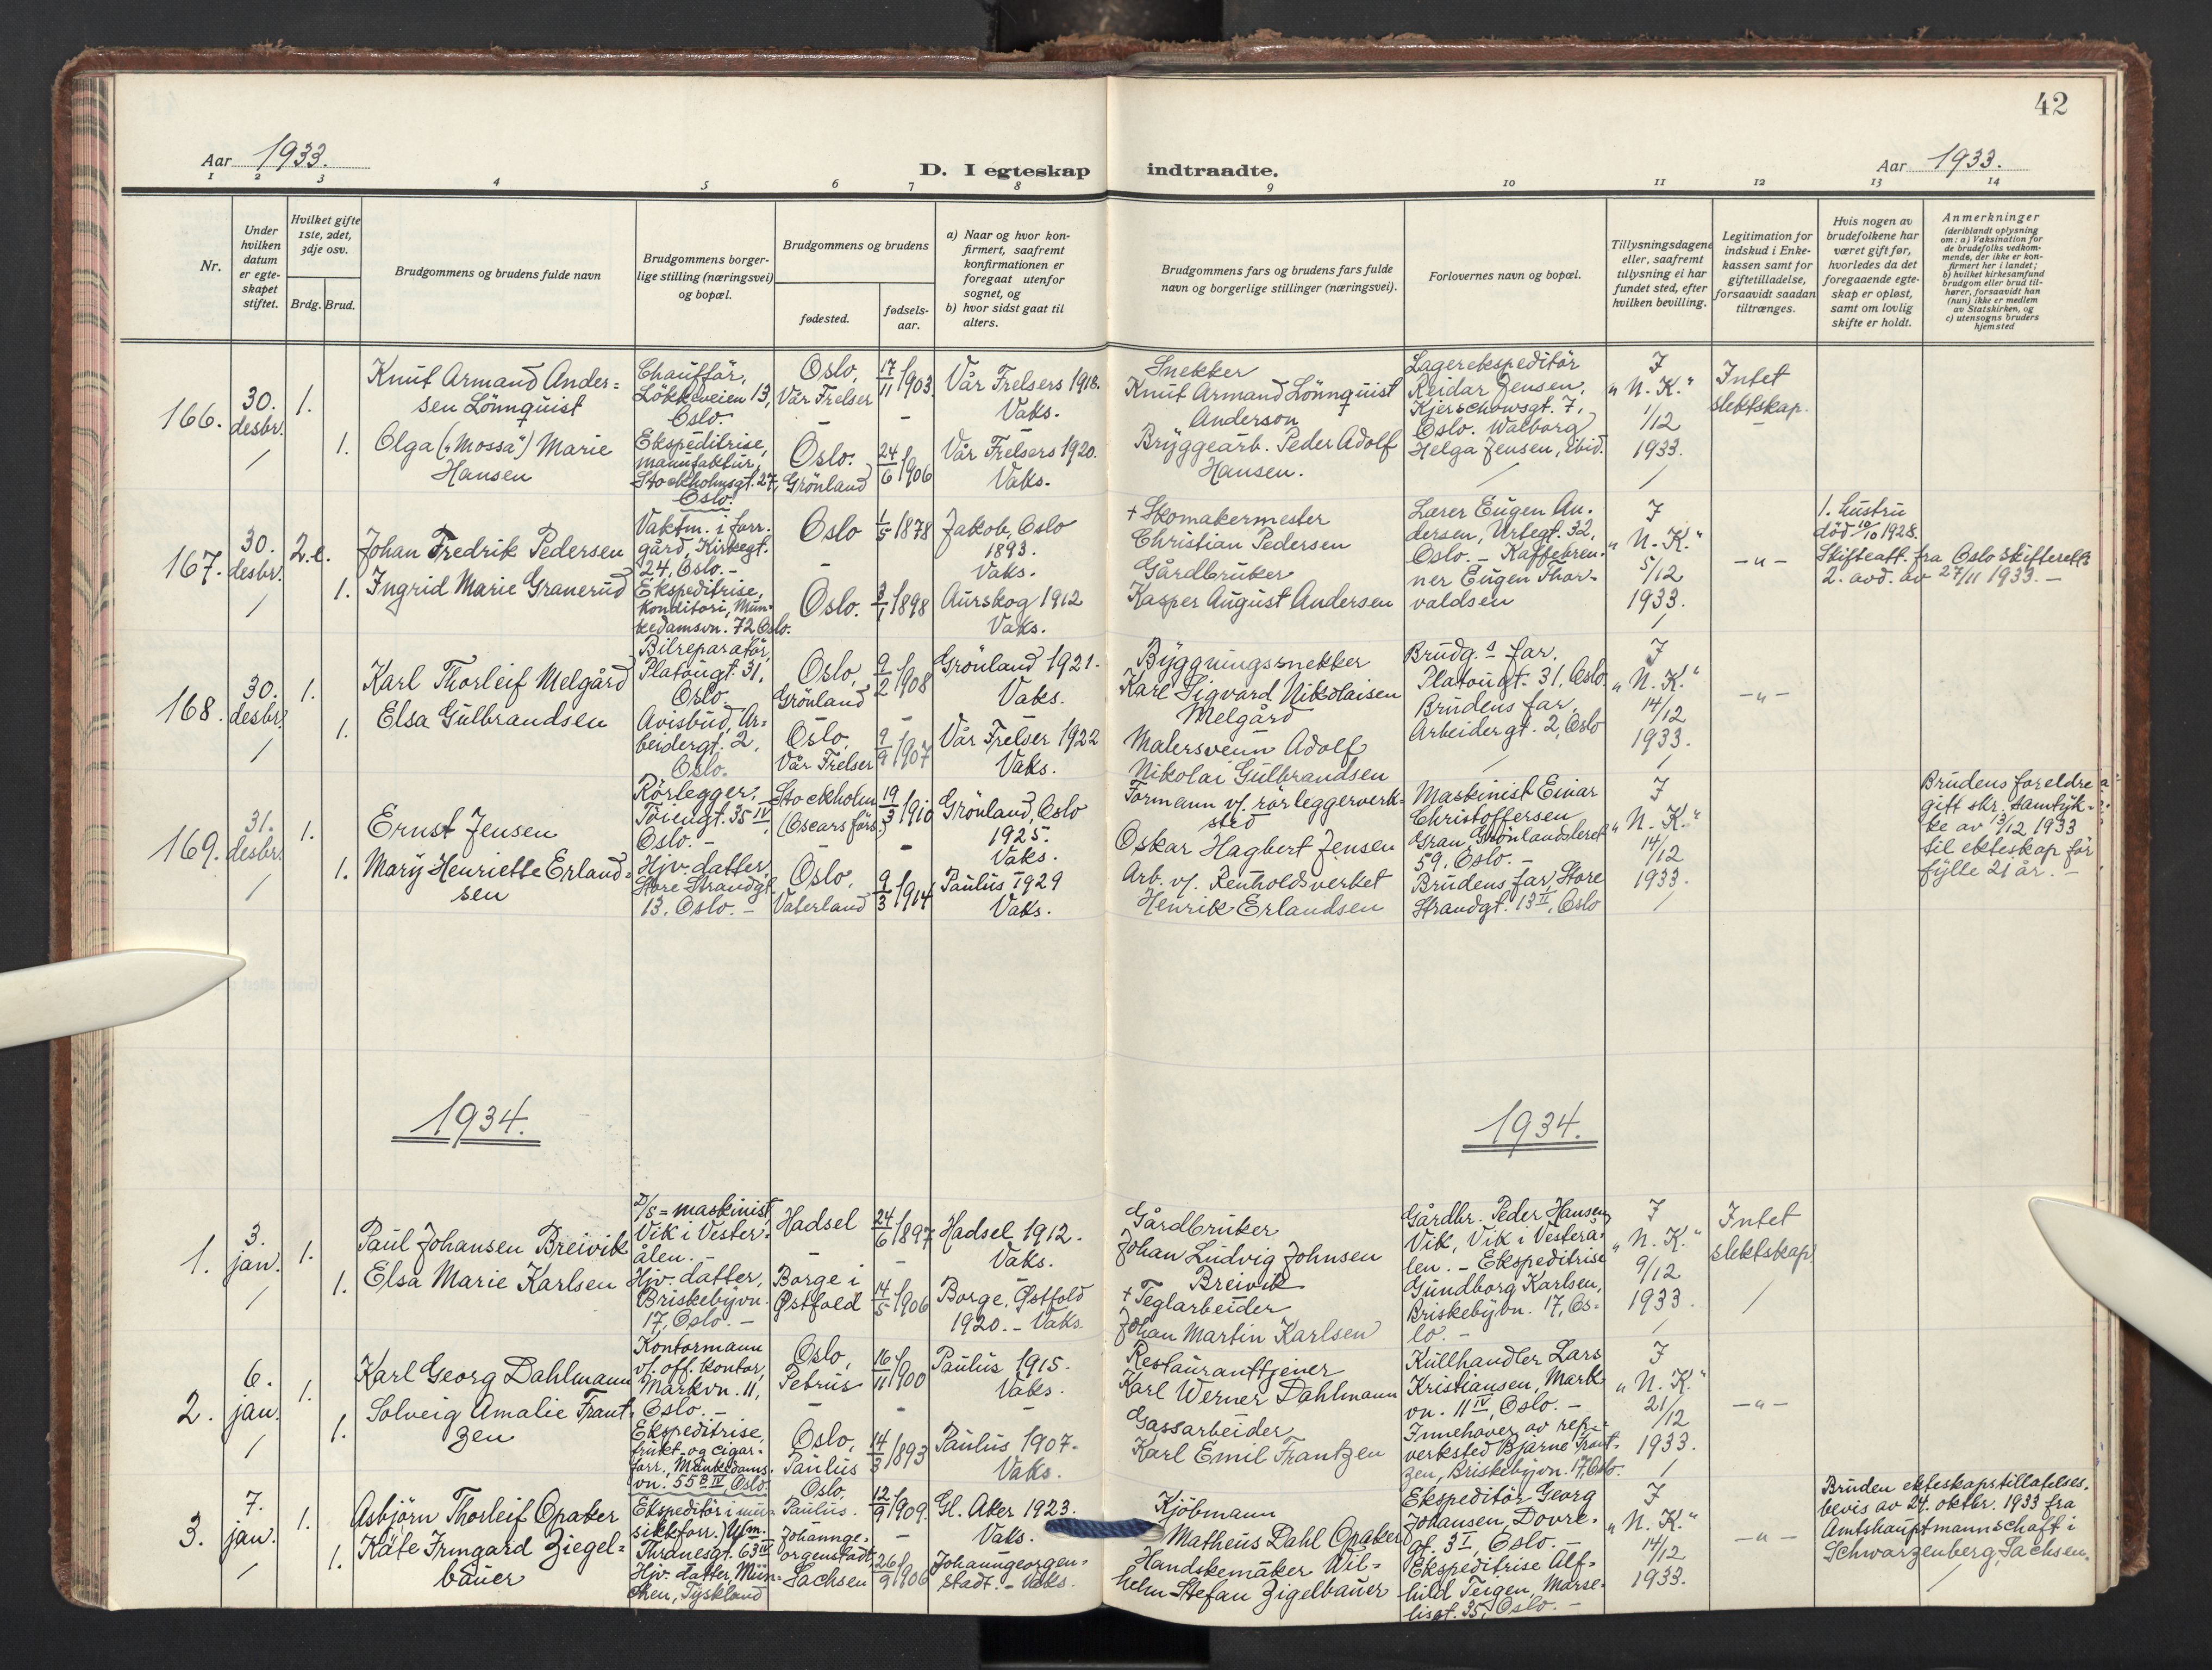 42
Aar 1933.
D. I egteskap indtraadte.
Aar 1933.
1 2 3 4 5 6 7 8 9 10 11 12 13 14
Nr.
Under hvilken datum er egteskapet stiftet.
Hvilket gifte 1ste, 2det, 3dje osv.
Brdg. Brud.
Brudgommens og brudens fulde navn
Brudgommens borgerlige stilling (næringsvei) og bopæl.
Brudgommens og brudens
fødested.
fødselsaar.
a) Naar og hvor konfirmert, saafremt konfirmationen er foregaat utenfor sognet, og
b) hvor sidst gaat til alters.
Brudgommens fars og brudens fars fulde navn og borgerlige stillinger (næringsvei).
Forlovernes navn og bopæl.
Tillysningsdagene eller, saafremt tillysning ei har fundet sted, efter hvilken bevilling.
Legitimation for indskud i Enkekassen samt for giftetilladelse, forsaavidt saadan tiltrænges.
Hvis nogen av brudefolkene har været gift før, hvorledes da det foregaaende egteskap er opløst, samt om lovlig skifte er holdt.
Anmerkninger
(deriblandt oplysning om: a) Vaksination for de brudefolks vedkommende, der ikke er konfirmert her i landet;
b) hvilket kirkesamfund brudgom eller brud tilhører, forsaavidt han (hun) ikke er medlem av Statskirken, og
c) utensogns bruders hjemsted
166.
30.
desbr.
1.
Knut Armand Ander=
sen Lönnquist
Chaufför,
Lökkeveien 13,
Oslo.
Oslo,
Vår Frelser
17/11 1903
Vår Frelsers 1918.
Vaks.
Snekker
Knut Armand Lönnquist
Anderson
Lagerekspeditör
Reidar Jensen,
Kjerschowsgt. 7,
Oslo. Walborg
Helga Jensen, ibid.
I
"N. K."
1/12
1933.
Intet
slektskap.
1.
Olga ("Mossa") Marie
Hansen
Ekspeditrise,
manufaktur,
Stockholmsgt. 27,
Oslo.
Oslo.
Grönland
24/6 1906
Vår Frelsers 1920.
Vaks.
Bryggearb. Peder Adolf
Hansen.
167.
30.
desbr.
2.e.
Johan Fredrik Pedersen
Vaktm. i forr.
gård, Kirkegt.
24, Oslo. -
Oslo
1/5 1878
Jakob, Oslo
1893.
Vaks.
+ Skomakermester
Christian Pedersen
Lærer Eugen An=
dersen, Urtegt. 32,
Oslo. - Kaffebren=
ner Eugen Thor=
valdsen
I
"N. K."
5/12
1933.
-"-
1. hustru
död 10/10 1928.
Skifteatt. fra Oslo skifteretts
2. avd. av 27/11 1933. -
1.
Ingrid Marie Granerud
Ekspeditrise,
konditori, Mun=
kedamsvn. 72 Oslo.
Oslo.
3/1 1898
Aurskog 1912
Vaks.
Gårdbruker
Kasper August Andersen
168.
30.
desbr.
1.
Karl Thorleif Melgård
Bilreparatör,
Platougt. 31,
Oslo.
Oslo,
Grönland
9/2 1908
Grönland 1921.
Vaks.
Bygningssnekker
Karl Sigvard Nikolaisen
Melgård
Brudg.s far,
Platougt. 31, Oslo
Brudens far,
Arbeidergt. 2, Oslo
I
"N. K."
14/12
1933.
-"-
1.
Elsa Gulbrandsen
Avisbud, Ar=
beidergt. 2,
Oslo.
Oslo,
Vår Frelser
9/9 1907
Vår Frelser 1922
Vaks.
Malersvenn Adolf
Nikolai Gulbrandsen
169.
31.
desbr.
1.
Ernst Jensen
Rörlegger,
Töiengt. 35 IV,
Oslo. -
Stockholm
(Oscars förs.)
19/3 1910
Grönland, Oslo
1925.
Vaks.
Formann v/ rörleggerverk=
sted
Oskar Hagbert Jensen
Maskinist Einar
Christoffersen
Gran, Grönlandsleret
59, Oslo. -
Brudens far, Store
Strandgt. 13 II, Oslo
I
"N. K."
14/12
1933.
Brudens foreldre
gitt skr. samtyk=
ke av 13/12 1933
til ekteskap för
fylte 21 år. -
1.
Mary Henriette Erland=
sen
Hjv. datter,
Store Strandgt.
13, Oslo. -
Oslo,
Vaterland
9/3 1914
Paulus 1929
Vaks.
Arb. v/ Renholdsverket
Henrik Erlandsen
1934.
1934.
1.
3.
jan.
1.
Paul Johansen Breivik
D/S = maskinist
Vik i Vester=
ålen. -
Hadsel
24/6 1897
Hadsel 1912.
Vaks.
Gårdbruker
Johan Ludvig Johnsen
Breivik
Gårdbr. Peder Hansen
Vik, Vik i Vesterå=
len. - Ekspeditrise
Gundborg Karlsen,
Briskebyvn. 17, Os=
lo. -
I
"N. K."
9/12
1933.
Intet
slektskap
1.
Elsa Marie Karlsen
Hjv. datter,
Briskebyvn.
17, Oslo. -
Borge i
Østfold
14/5 1906
Borge, Østfold
1920. - Vaks.
+ Teglarbeider
Johan Martin Karlsen
2.
6.
jan.
1.
Karl Georg Dahlmann
Kontormann
v/ off. kontor,
Markvn. 11,
Oslo. -
Oslo,
Petrus
16/11 1900
Paulus 1915.
Vaks.
Restauranttjener
Karl Werner Dahlmann
Kullhandler Lars
Kristiansen, Mark
vn. 11 IV, Oslo. -
Innehaver av rep.=
verksted Bjarne Frant=
zen, Briskebyvn. 17, Oslo.
I
"N. K."
21/12
1933.
-"-
1.
Solveig Amalie Frant=
zen
Ekspeditrise,
frukt- og cigar=
forr., Munkedams=
vn. 55 B IV, Oslo.
Oslo,
Paulus
14/3 1893
Paulus 1907.
Vaks.
Gassarbeider
Karl Emil Frantzen
3.
7.
jan.
1.
Asbjörn Thorleif Opaker
Ekspeditör i mu=
sikkforr., Wm.
Thranesgt. 63 IV
Oslo,
Paulus.
12/9 1909.
Gl. Aker 1923.
Vaks.
Kjöbmann
Matheus Dahl Opaker
Ekspeditör Georg
Johansen, Dovre=
gt. 3 I, Oslo. -
Ekspeditrise Alf=
hild Teigen, Marse=
lisgt. 35, Oslo. -
I
"N. K."
14/12
1933.
-"-
Bruden ekteskapstillatelses=
bevis av 24. oktbr. 1933 fra
Amtshauptmannschaft i
Schwarzenberg, Sachsen.
1.
Käte Irmgard Ziegel=
bauer
Hjv. datter, Mün=
chen, Tyskland
Johannge=
orgenstadt,
Sachsen
26/9 1906
Johanngeorgen=
stadt. - Vaks.
Handskemaker Wil=
helm Stefan Zigelbauer